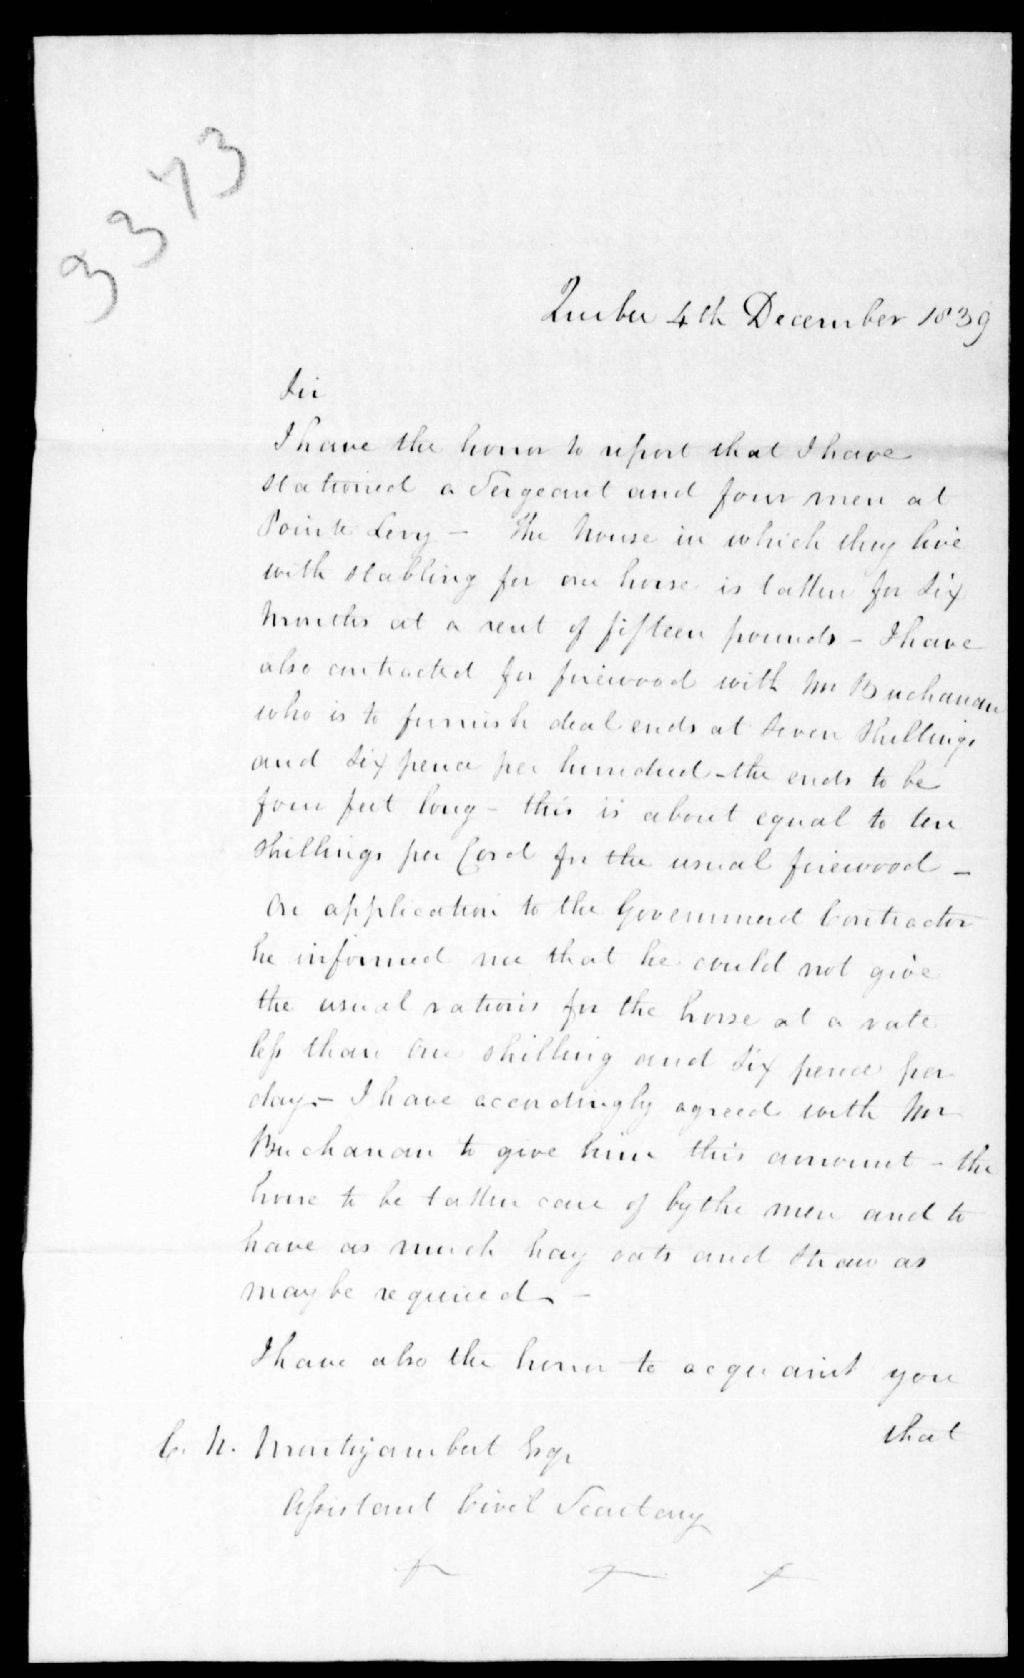 3373
Quebec 4th December 1839
Sir
I have the honor to report that I have
stationed a Sergeant and four men at
Pointe Levy – The house in which they live
with stabling for one horse is taken for Six
Months at a rent of fifteen pounds – I have
also contracted for firewood with Mr Buchanan
who is to furnish deal ends at Seven Shillings
and Six pence per hundred – the ends to be
four feet long – this is about equal to ten
Shillings per Cord for the usual firewood –
On application to the Government Contractor
he informed me that he could not give
the usual rations for the horse at a rate
less than One Shilling and Six pence per
day – I have accordingly agreed with Mr
Buchanan to give him this amount – the
horse to be taken care of by the men and to
have as much hay oats and Straw as
may be required –
I have also the honor to acquaint you
that
C. N. Montizambert Esqr
Assistant Civil Secretary